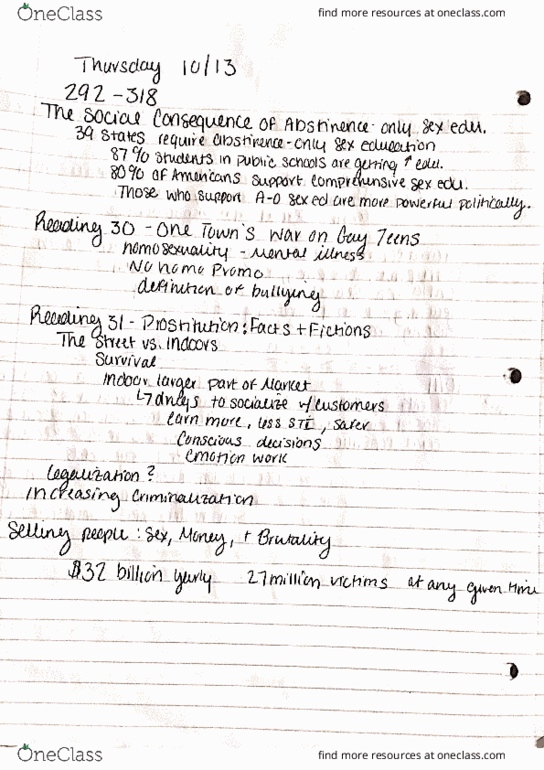 OneClass
find more resources at oneclass.com
Thursday 10/13
292-318
The Social Consequence of Abstinence-only sex edu.
39 states require abstinence-only sex education
87% students in public schools are getting ↑ edu.
80% of Americans support comprehensive sex edu.
Those who support A-O sex ed are more powerful politically.
Reading 30 - One Town's War on Gay Teens
homosexuality - mental illness
No homo Promo
definition of bullying
Reading 31 - Prostitution: Facts + Fictions
The Street vs. Indoors
Survival
Indoor larger part of Market
↳ to socialize w/ customers
earn more, less STI, safer
Conscious decisions
Emotion work
Legalization?
Increasing Criminalization
Selling people: Sex, Money, + Brutality
$32 billion yearly 27 million victims at any given time
OneClass
find more resources at oneclass.com